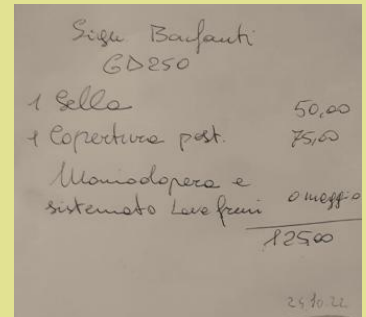 Sign Banfanti
GD250
1 Sella 50,00
1 Copertura post. 75,00
Manodopera e
sistemato leva freni omaggio
125,00
25.10.22